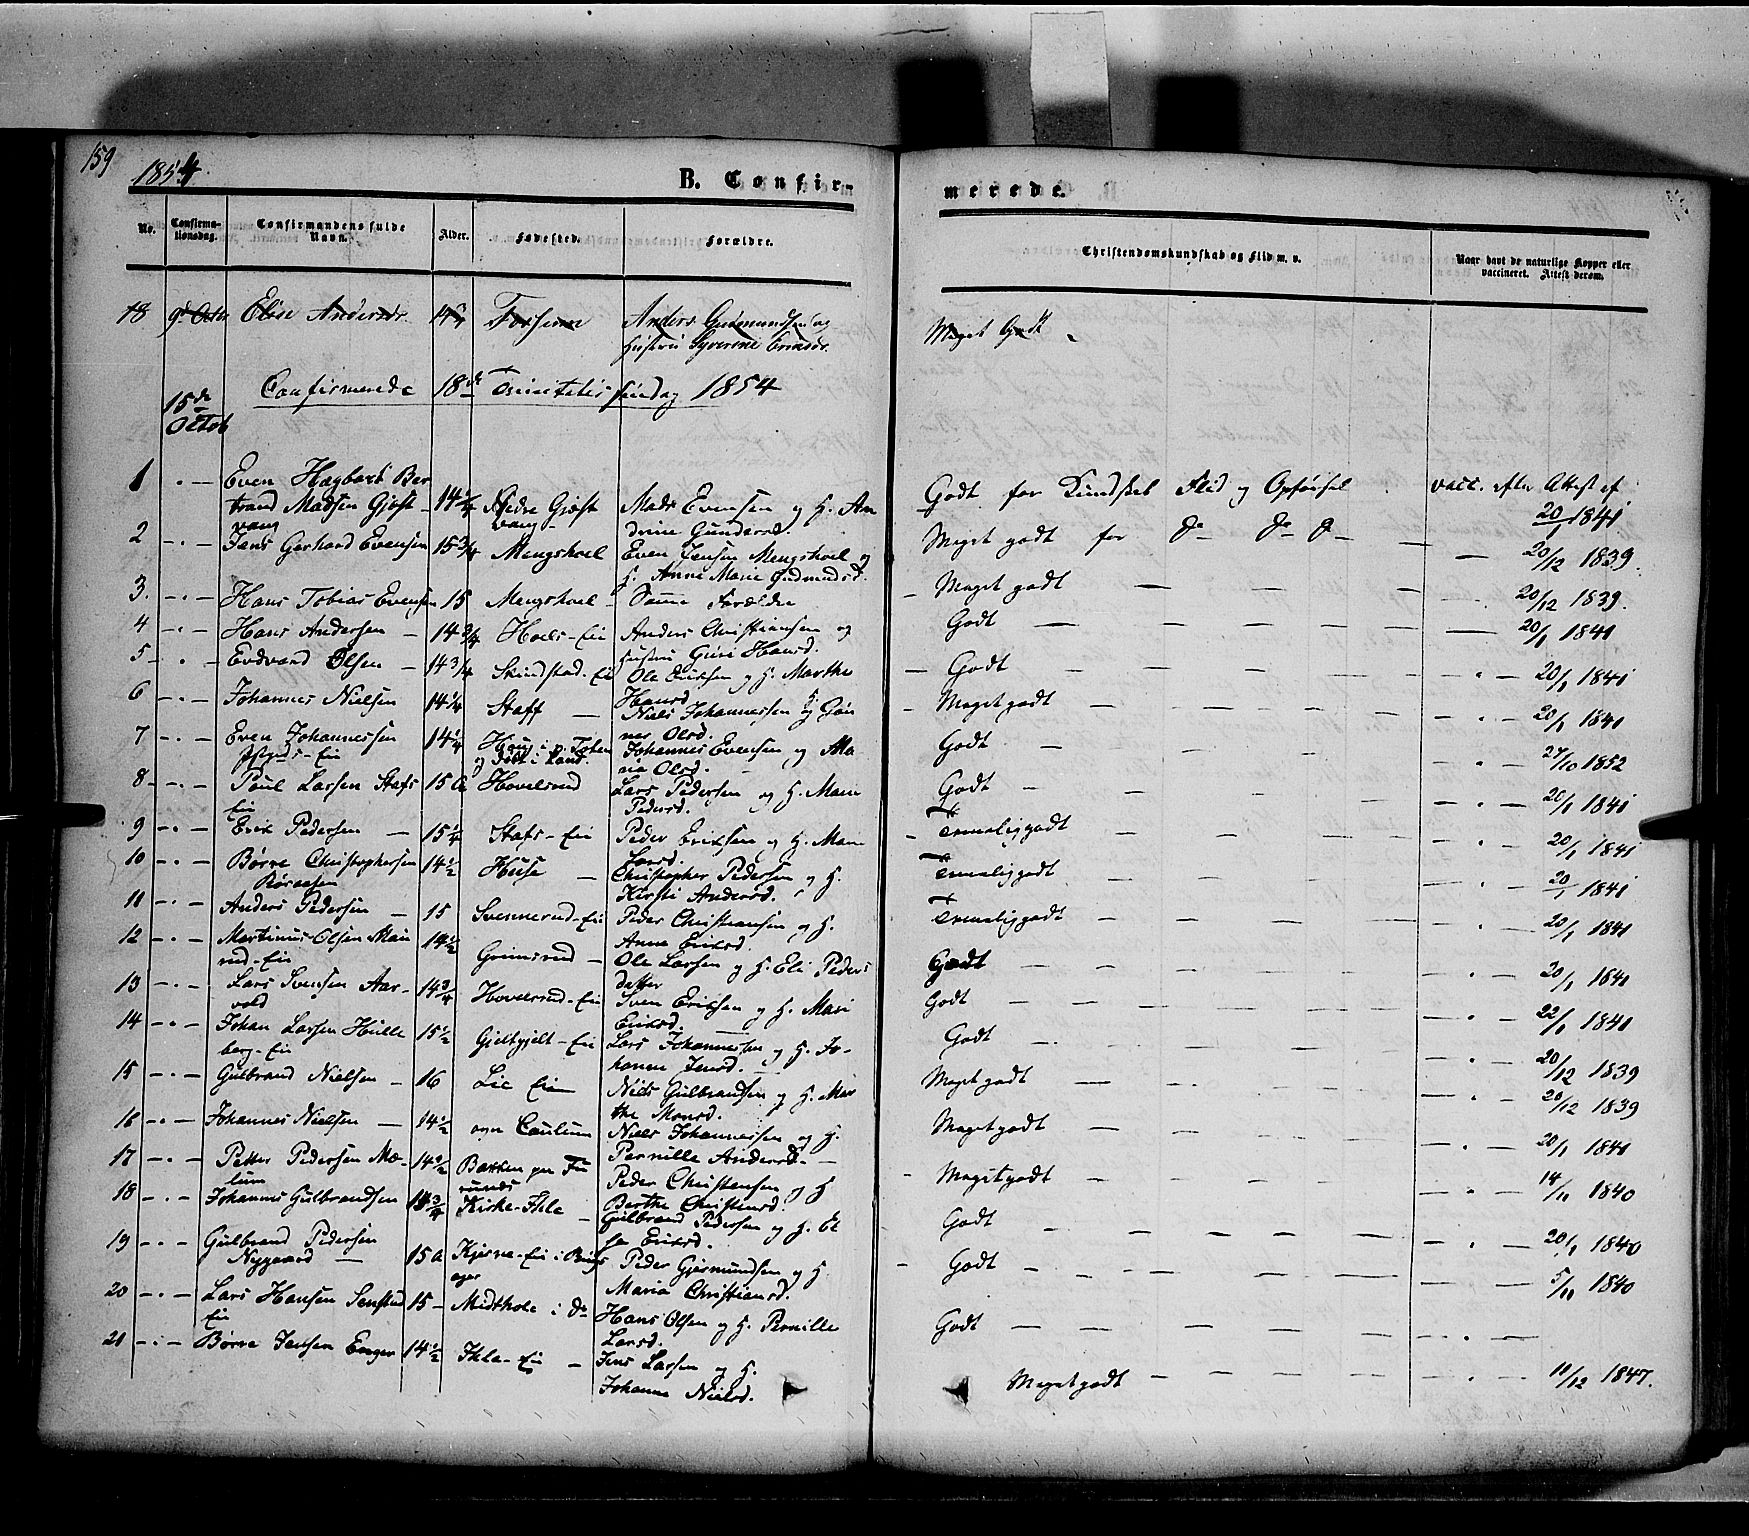 159
1854
B. Confir-
merede.
No.
Confirma-
tionsdag.
Confirmandens fulde
Navn.
Alder.
Fødested.
Forældre.
Christendomskundskab og Flid m. v.
Naar havt de naturlige Kopper eller
vaccineret. Attest derom.
18 9d Octbr Eline Andersdr. Fossem Anders Gudmundsen og
Hustru Syverine Ericsdr.
Meget Godt
Confirmerede 18de Trinitatis Sundag 1854
15de
Octob
1 - " - Even Hagbart Ber
trand Madsen Gjøst-
vang 14 1/4 Nedre Gjøst
vang - Mads Evensen og H. An
drine Gundersd. Godt for Kundskab Flid og Opførsel vacc. efter Attest af
20/1 1841
2 - " - Jens Gerhard Evensen 15 3/4 Mengshoel Even Jensen Mengshoel og
H. Anne Marie Gudmundsd. Meget godt for Do Do Do — 20/12 1839.
3. - " - Hans Tobias Evensen 15 Mengshoel - Samme Forældre Meget godt — 20/12 1839.
4 - " - Hans Andersen - 14 3/4 Hoels-Eie Anders Christiansen og
Hustru Guri Hansd. Godt — 20/1 1841
5 - " - Evdvard Olsen - 14 3/4 Skindstad-Eie Ole Eriksen og H. Marthe
Hansd. Godt — 20/1 1841
6 - " - Johannes Nielsen 14 1/4 Staff — Niels Johannessen og H. Gun
nor Olsd. Meget godt — 20/1 1841
7 - " - Even Johannessen
Eie 14 1/4 Haug i v. Toten
og født i Land. Johannes Evensen og Ma
ria Olsd. Godt — 27/10 1852
8 - " - Poul Larsen Stafs
Eie 15 Hovelsrud Lars Pedersen og H. Mari
Pedersd. Godt — 20/1 1841
9 - " - Erik Pedersen — 15 1/4 Stafs-Eie Peder Eriksen og H. Mari
Larsd. Temelig godt — 20/1 1841
10 - " - Børre Christophersen
Røraasen 14 1/2 Huse — Christopher Pedersen og H.
Kirsti Andersd. Temelig godt — 20/1 1841
11 - " - Anders Pedersen — 15 Svennerud-Eie Peder Christiansen og H.
Anne Eriksd. Temelig godt — 20/1 1841
12 - " - Martinus Olsen Mæh
rud-Eie 14 1/2 Grimsrud — Ole Larsen og H. Eli Peders
datter Godt — 20/1 1841
13 - " - Lars Svensen Aar-
vold 14 3/4 Hovelsrud-Eie Sven Eriksen og H. Mari
Eriksd. Godt — 22/1 1841
14 - " - Johan Larsen Hulle
berg-Eie 15 1/2 Gjelhgjelt-Eie Lars Johannessen og H. Jo-
hanne Jensd. Godt — 20/12 1839
15 - " - Gulbrand Nielsen - 16 Lie Eie Niels Gulbrandsen og H. Mar
the Monsd. Meget godt — 20/12 1839
16 - " - Johannes Nielsen — 14 1/2 Caulum Niels Johannessen og H.
Pernille Andersd. Meget godt — 20/1 1841
17 - " - Petter Pedersen Mæ-
lum 14 1/2 Bakken Fu
runds Peder Christensen og H
Berthe Christensd. Meget godt — 14/11 1840
18 - " - Johannes Gulbrandsen 14 3/4 Kirke-Ihle — Gulbrand Pedersen og H. El
se Eriksd. Godt — 20/1 1840
19 - " - Gulbrand Pedersen
Nygaard — 15 Kjerne-Eie i Rings
ager Peder Gjermundsen og H.
Maria Christiansd. Godt — 5/11 1840
20 - " - Lars Hansen Senstad
Eie 15 - Midthole i Do Hans Olsen og H. Pernille
Larsd. Godt —
21 - " - Børre Jensen Enger 14 1/2 Ihle-Eie — Jens Larsen og H.
Johanne Nielsd. Meget godt — 11/12 1847.